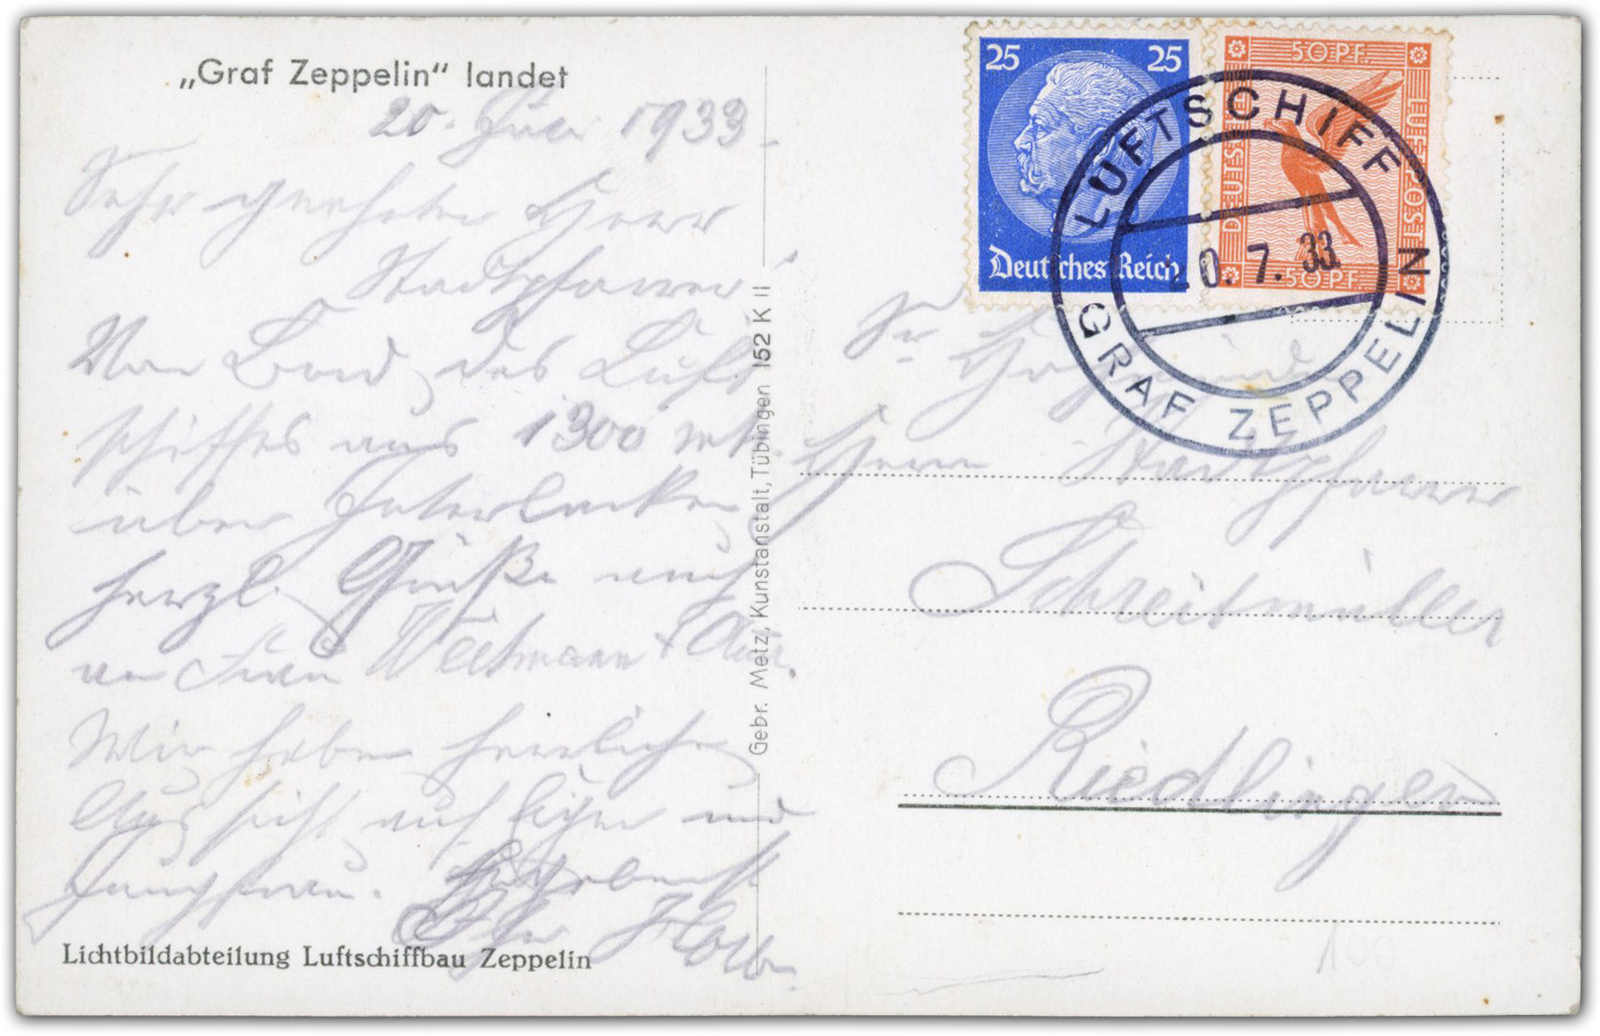 „Graf Zeppelin“ landet
20. Juli 1933
Sehr geehrter Herr
Stadtpfarrer!
Von Bord des Luft
schiffes aus 1300 mtr.
über Interlacken
herzl. Grüße auch
an Frau Weitmann +
Wir haben herrliche
Aussicht auf Eiger und
Jungfrau.
Lichtbildabteilung Luftschiffbau Zeppelin
Gebr. Metz, Kunstanstalt, Tübingen 152 K II
25 25
Deutsches Reich
50 PF.
DEUTSCHE LUFTPOST
50 PF.
LUFTSCHIFF
20.7.33
GRAF ZEPPELIN
Sr. Hochwürden
Herrn Stadtpfarrer
Schreitmüller
Riedlingen
100